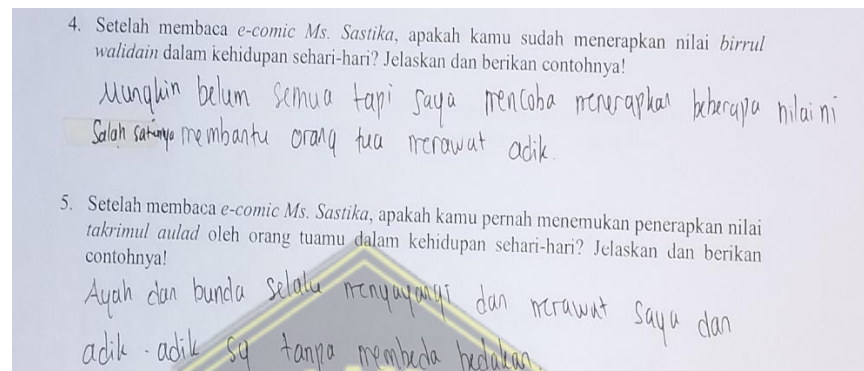 4. Setelah membaca e-comic Ms. Sastika, apakah kamu sudah menerapkan nilai birrul
walidain dalam kehidupan sehari-hari? Jelaskan dan berikan contohnya!
Mungkin belum semua tapi saya mencoba menerapkan beberapa nilai ni
Salah satunya membantu orang tua merawat adik.
5. Setelah membaca e-comic Ms. Sastika, apakah kamu pernah menemukan penerapkan nilai
takrimul aulad oleh orang tuamu dalam kehidupan sehari-hari? Jelaskan dan berikan
contohnya!
Ayah dan bunda selalu menyayangi dan merawat saya dan
adik - adik sy tanpa membeda bedakan.